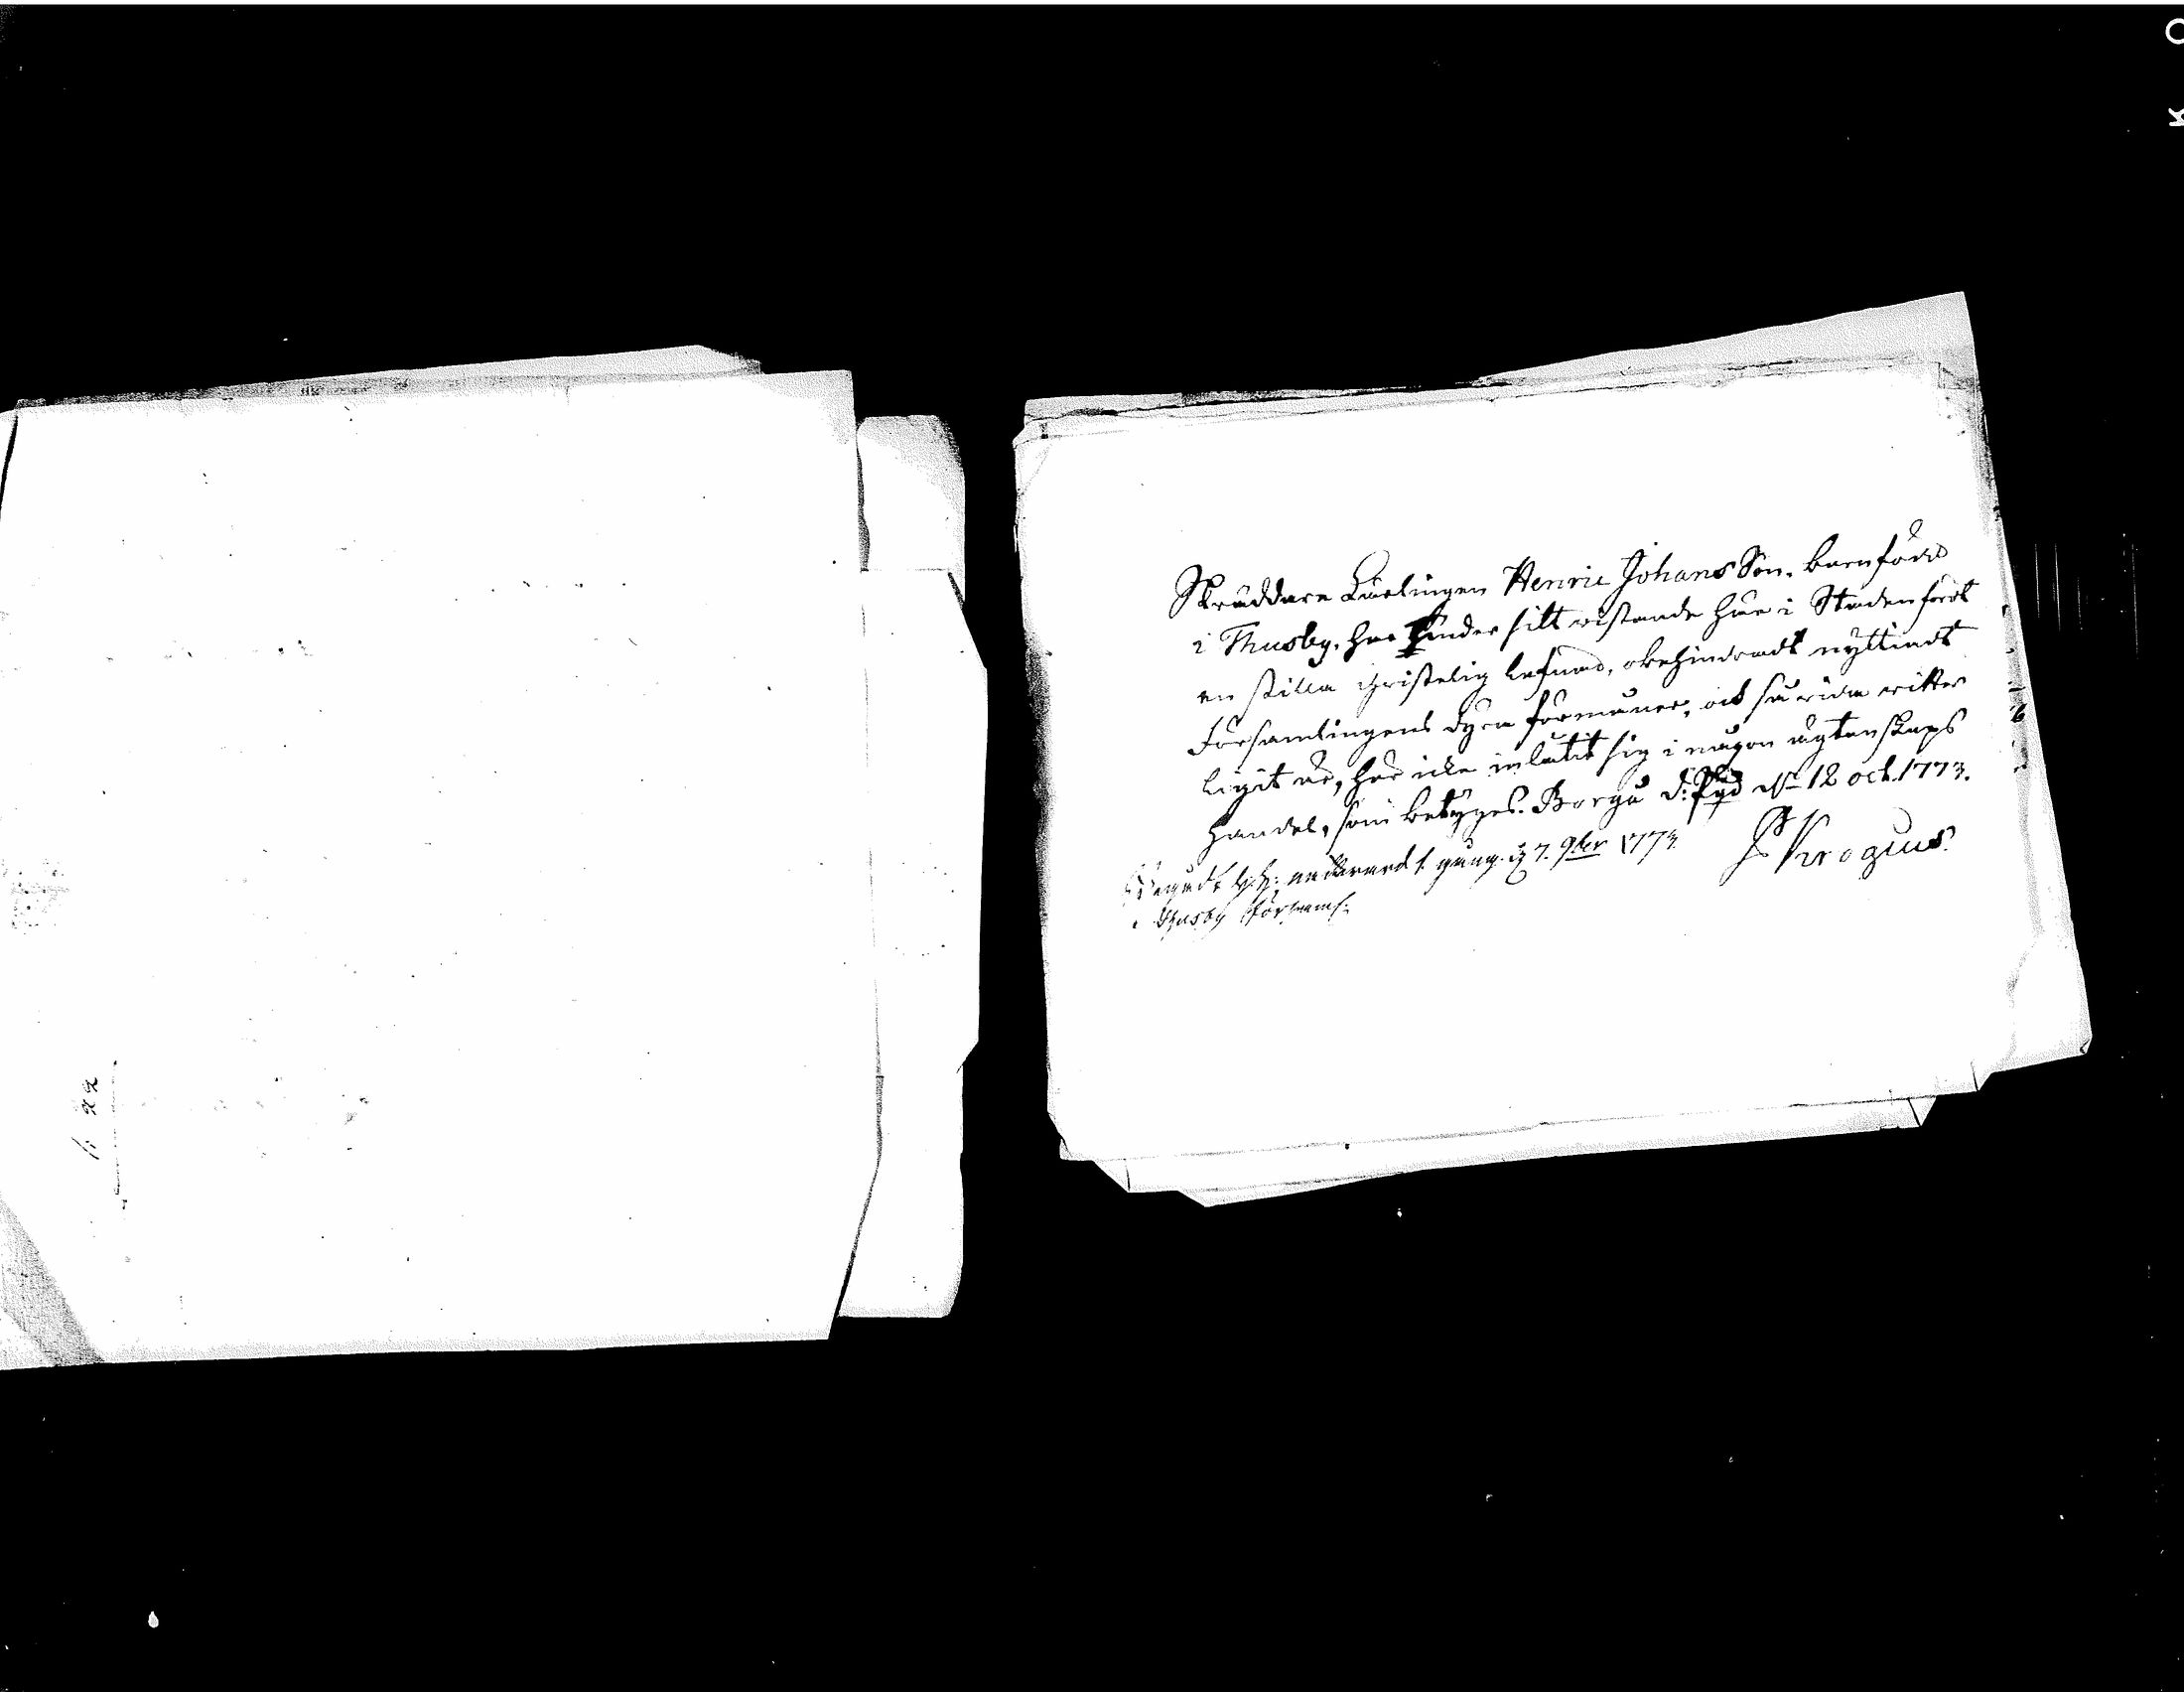 Skräddare Lärlingen Henric Johans Son. barnfödd
i Thusby, har under sitt wistande här i Staden fördt
en stilla christelig lefnad, obehindradt nyttiadt
Församlingens dyra förmåner, och så wida witter
ligit är, har icke inlåtit sig i någon ägtenskaps
handel, som betyges. Borgå d: 12 oct. 1773.
J Krogius.
h: Nattward s. gång. d 7. 9ber 1773
Thusby Församl: